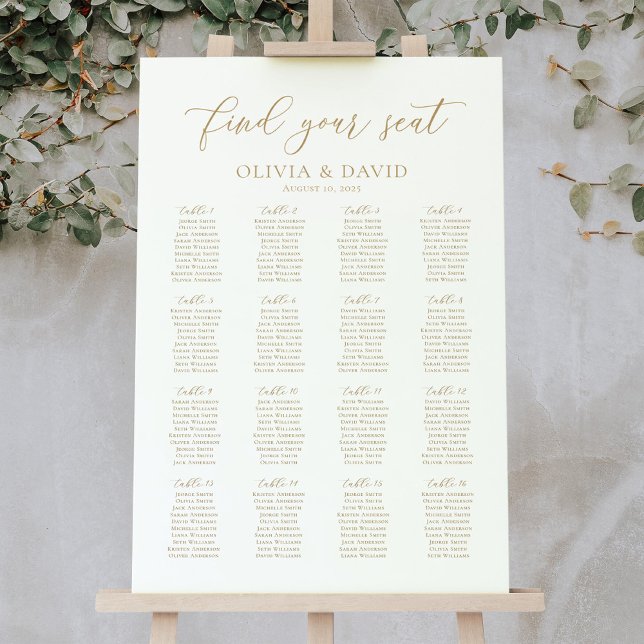 find your seat
OLIVIA & DAVID
August 10, 2025
table 1
Jeorge Smith
Olivia Smith
Jack Anderson
Sarah Anderson
David Williams
Michelle Smith
Liana Williams
Seth Williams
Kristen Anderson
Oliver Anderson
table 2
Kristen Anderson
Oliver Anderson
Michelle Smith
Jeorge Smith
Olivia Smith
David Williams
Jack Anderson
Sarah Anderson
Liana Williams
Seth Williams
table 3
Jeorge Smith
Olivia Smith
Seth Williams
Kristen Anderson
Oliver Anderson
David Williams
Michelle Smith
Liana Williams
Jack Anderson
Sarah Anderson
table 4
Kristen Anderson
Oliver Anderson
David Williams
Michelle Smith
Jack Anderson
Sarah Anderson
Liana Williams
Jeorge Smith
Olivia Smith
Seth Williams
table 5
Kristen Anderson
Oliver Anderson
Michelle Smith
Jeorge Smith
Olivia Smith
Jack Anderson
Sarah Anderson
Liana Williams
Seth Williams
David Williams
table 6
Michelle Smith
Kristen Anderson
Oliver Anderson
Jeorge Smith
Olivia Smith
Jack Anderson
Sarah Anderson
Liana Williams
Seth Williams
David Williams
table 7
David Williams
Michelle Smith
Liana Williams
Seth Williams
Kristen Anderson
Oliver Anderson
Jack Anderson
Sarah Anderson
Jeorge Smith
Olivia Smith
table 8
Kristen Anderson
Oliver Anderson
Liana Williams
Seth Williams
David Williams
Jack Anderson
Sarah Anderson
Michelle Smith
Jeorge Smith
Olivia Smith
table 9
Sarah Anderson
David Williams
Michelle Smith
Liana Williams
Seth Williams
Kristen Anderson
Oliver Anderson
Jeorge Smith
Olivia Smith
Jack Anderson
table 10
Jack Anderson
Sarah Anderson
David Williams
Liana Williams
Seth Williams
Kristen Anderson
Oliver Anderson
Michelle Smith
Jeorge Smith
Olivia Smith
table 11
Seth Williams
Kristen Anderson
Oliver Anderson
Jack Anderson
Sarah Anderson
David Williams
Michelle Smith
Liana Williams
Jeorge Smith
Olivia Smith
table 12
David Williams
Michelle Smith
Jeorge Smith
Olivia Smith
Liana Williams
Seth Williams
Kristen Anderson
Oliver Anderson
Jack Anderson
Sarah Anderson
table 13
Jeorge Smith
Olivia Smith
Jack Anderson
Sarah Anderson
David Williams
Michelle Smith
Liana Williams
Seth Williams
Kristen Anderson
Oliver Anderson
table 14
Kristen Anderson
Oliver Anderson
Michelle Smith
Jeorge Smith
Olivia Smith
David Williams
Jack Anderson
Sarah Anderson
Liana Williams
Seth Williams
table 15
Jeorge Smith
Olivia Smith
Seth Williams
Kristen Anderson
Oliver Anderson
David Williams
Michelle Smith
Liana Williams
Jack Anderson
Sarah Anderson
table 16
Kristen Anderson
Oliver Anderson
David Williams
Michelle Smith
Jack Anderson
Sarah Anderson
Liana Williams
Jeorge Smith
Olivia Smith
Seth Williams